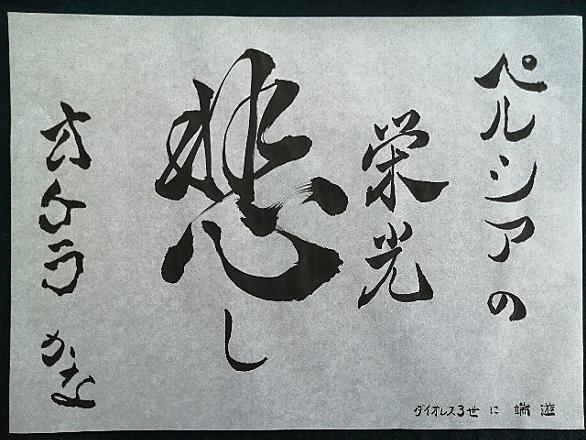 ペルシアの
栄光
悲し
かな
ダイオレス3世に 端遊